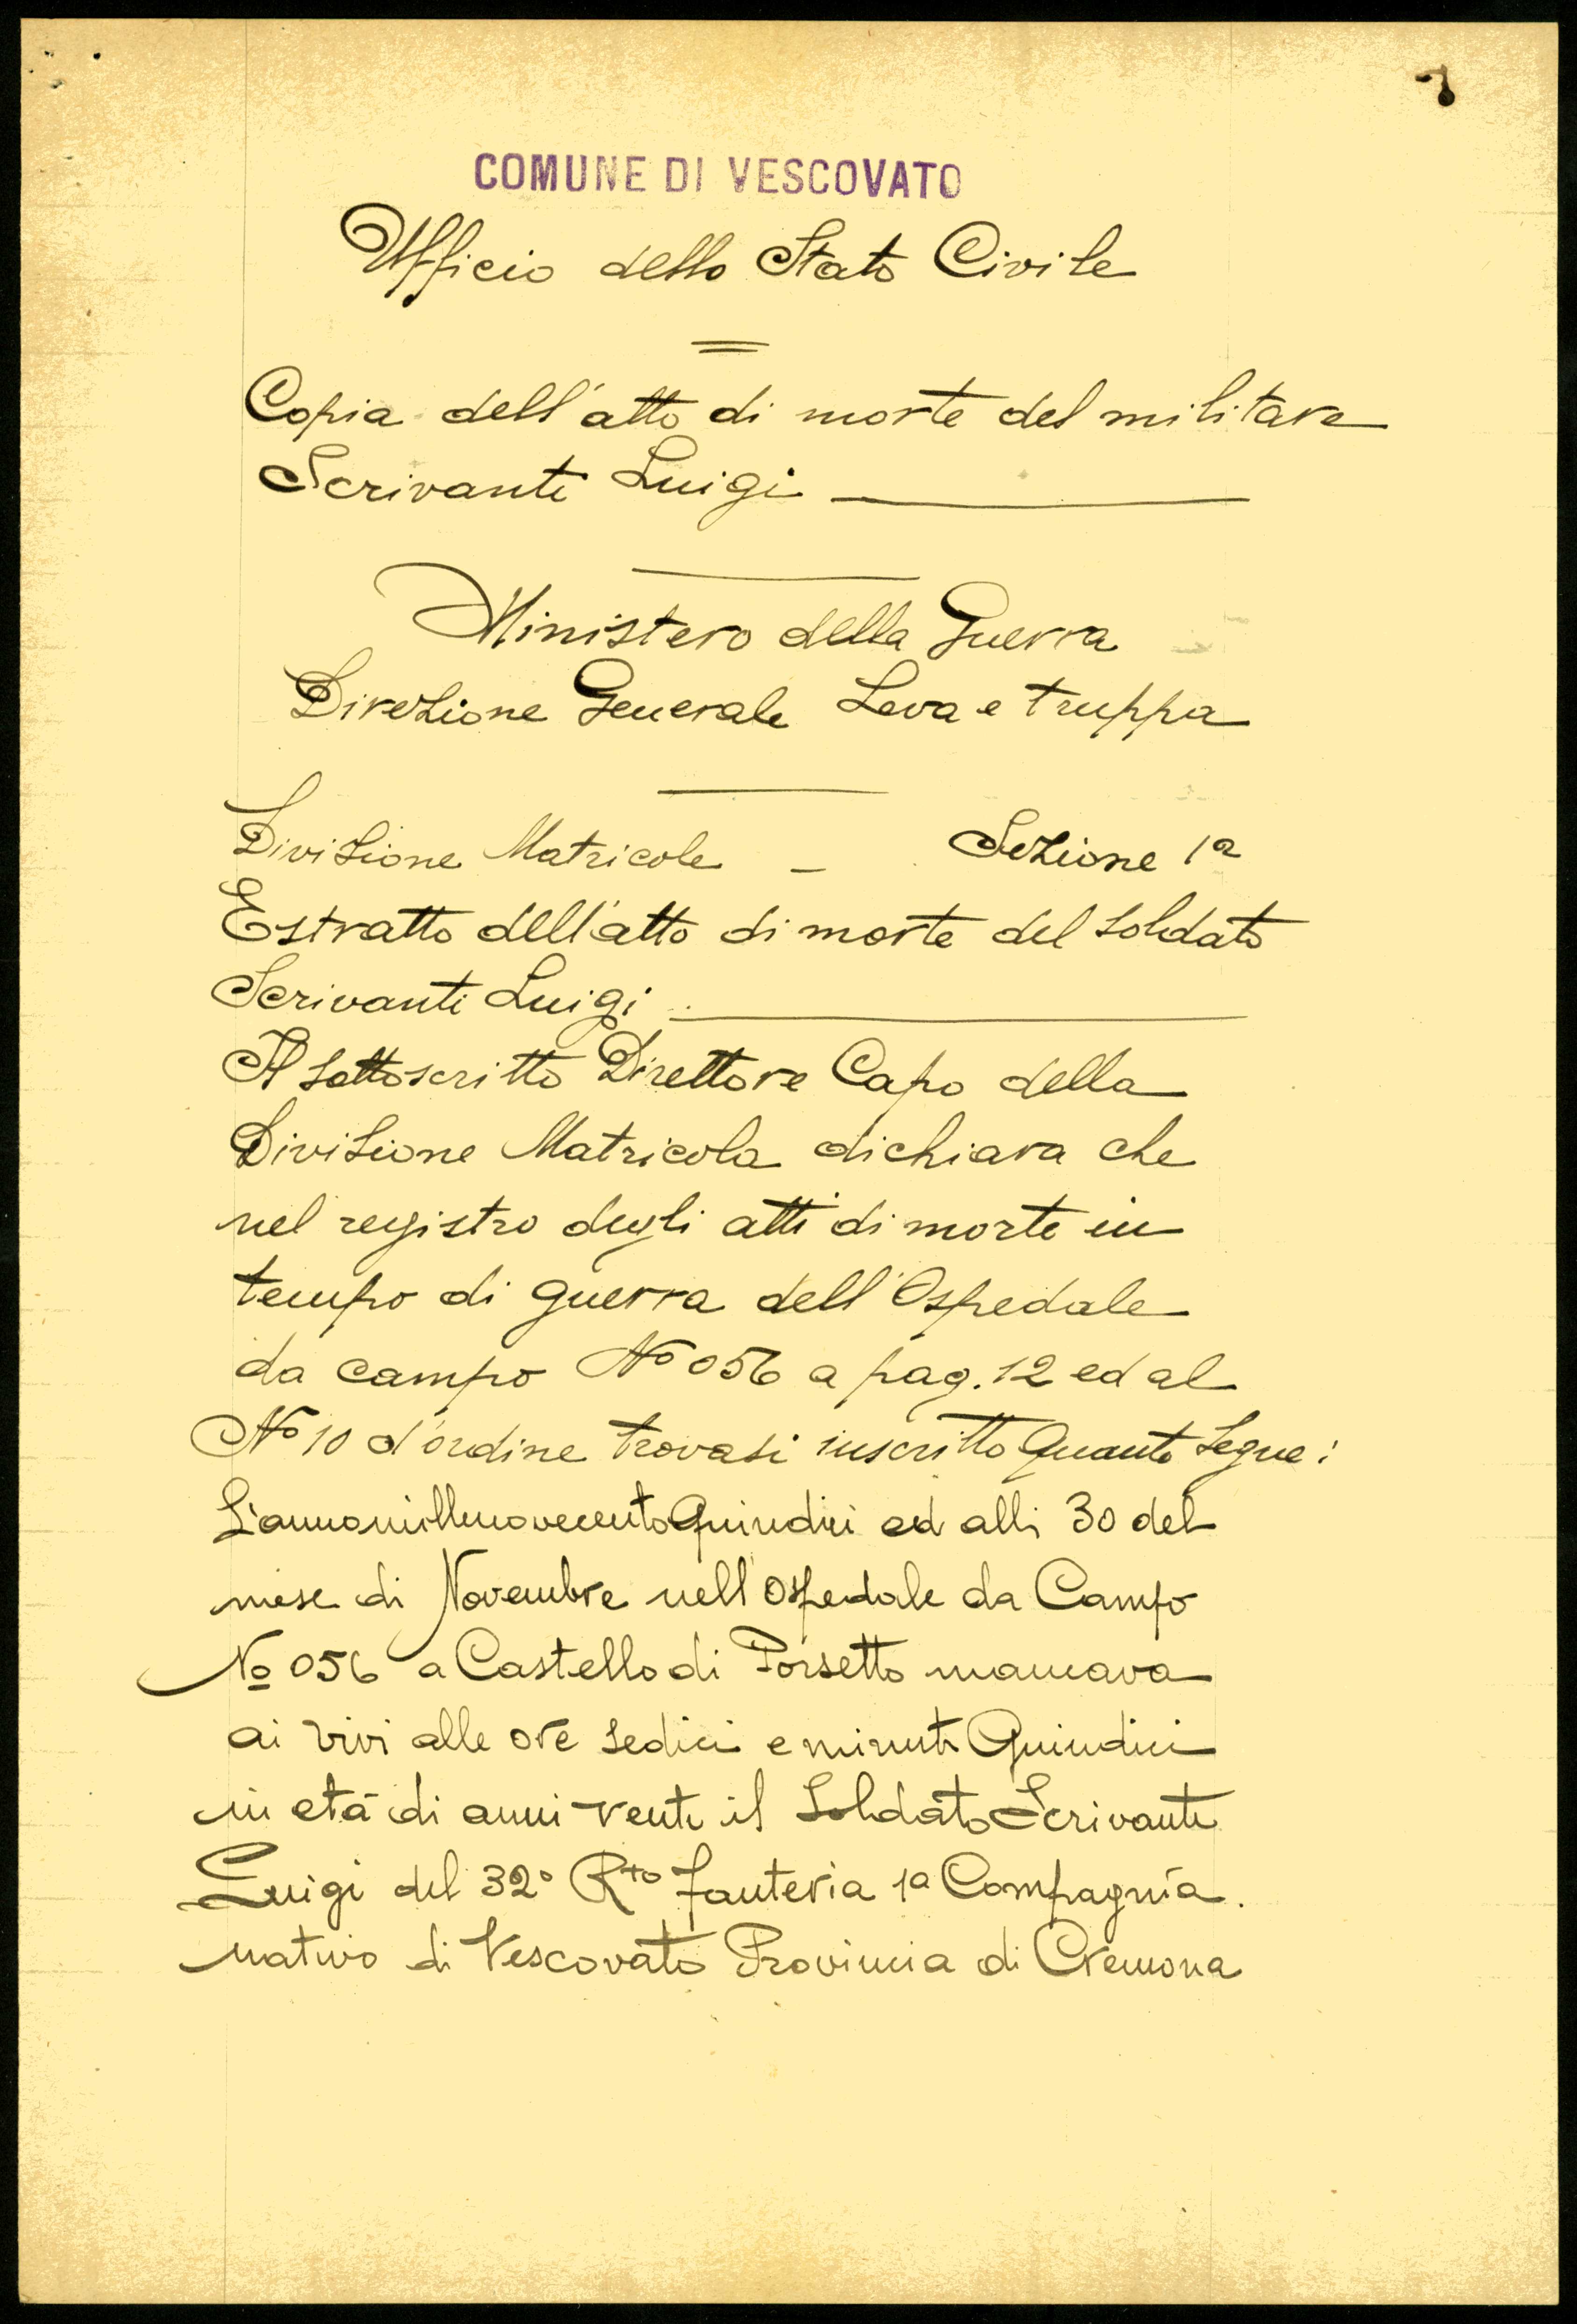 COMUNE DI VESCOVATO
Ufficio dello Stato Civile
Copia dell'atto di morte del militare
Scrivanti Luigi
Ministero della Guerra
Direzione Generale Leva e truppa
Divisione Matricole - Sezione 1a
Estratto dell'atto di morte del soldato
Scrivanti Luigi
Il sottoscritto Direttore Capo della
Divisione Matricola dichiara che
nel registro degli atti di morte in
tempo di guerra dell'Ospedale
da campo No 056 a pag. 12 ed al
No 10 d'ordine trovasi inscritto Quanto segue:
L'annomillenovecentoQuindici ed alli 30 del
mese di Novembre nell'Ospedale da Campo
No 056 a Castello di Porsetto mancava
ai vivi alle ore sedici e minuti Quindici
in età di anni venti il Soldato Scrivanti
Luigi del 32° Rto Fanteria 1a Compagnia.
nativo di Vescovato Provincia di Cremona